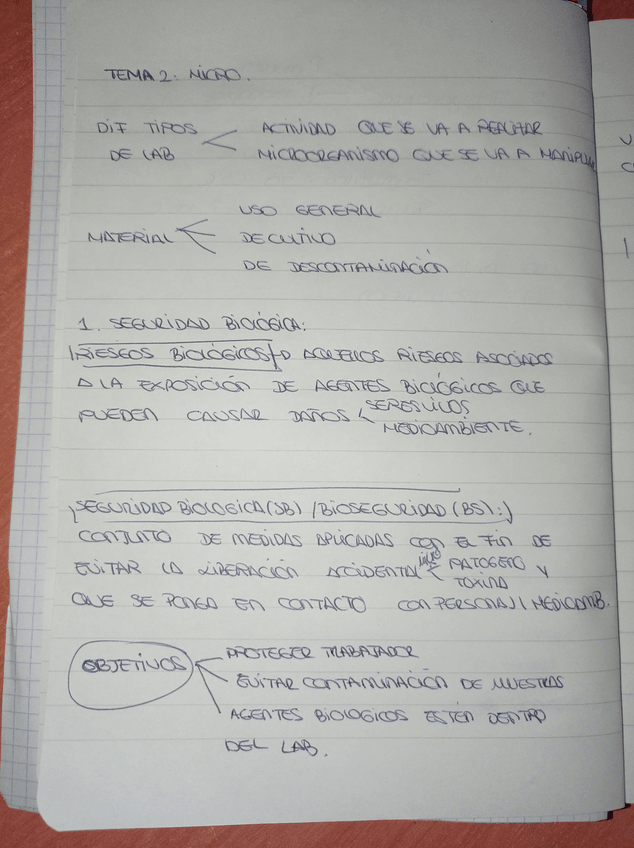 TEMA 2: MICRO.
DIF TIPOS < ACTIVIDAD QUE SE VA A REALIZAR
DE LAB MICROORGANISMO QUE SE VA A MANIPULAR
USO GENERAL
MATERIAL < DE CULTIVO
DE DESCONTAMINACIÓN
1. SEGURIDAD BIOLÓGICA:
RIESGOS BIOLÓGICOS AQUELLOS RIESGOS ASOCIADOS
A LA EXPOSICIÓN DE AGENTES BIOLÓGICOS QUE
PUEDEN CAUSAR DAÑOS < SERES VIVOS
MEDIOAMBIENTE.
SEGURIDAD BIOLOGICA (SB) / BIOSEGURIDAD (BS):
CONJUNTO DE MEDIDAS APLICADAS CON EL FIN DE
EVITAR LA LIBERACIÓN ACCIDENTAL < PATOGENO Y
TOXINA
QUE SE PONGA EN CONTACTO CON PERSONAS / MEDIOAMB.
PROTEGER TRABAJADOR
OBJETIVOS < EVITAR CONTAMINACIÓN DE MUESTRAS
AGENTES BIOLOGICOS ESTÉN DENTRO
DEL LAB.